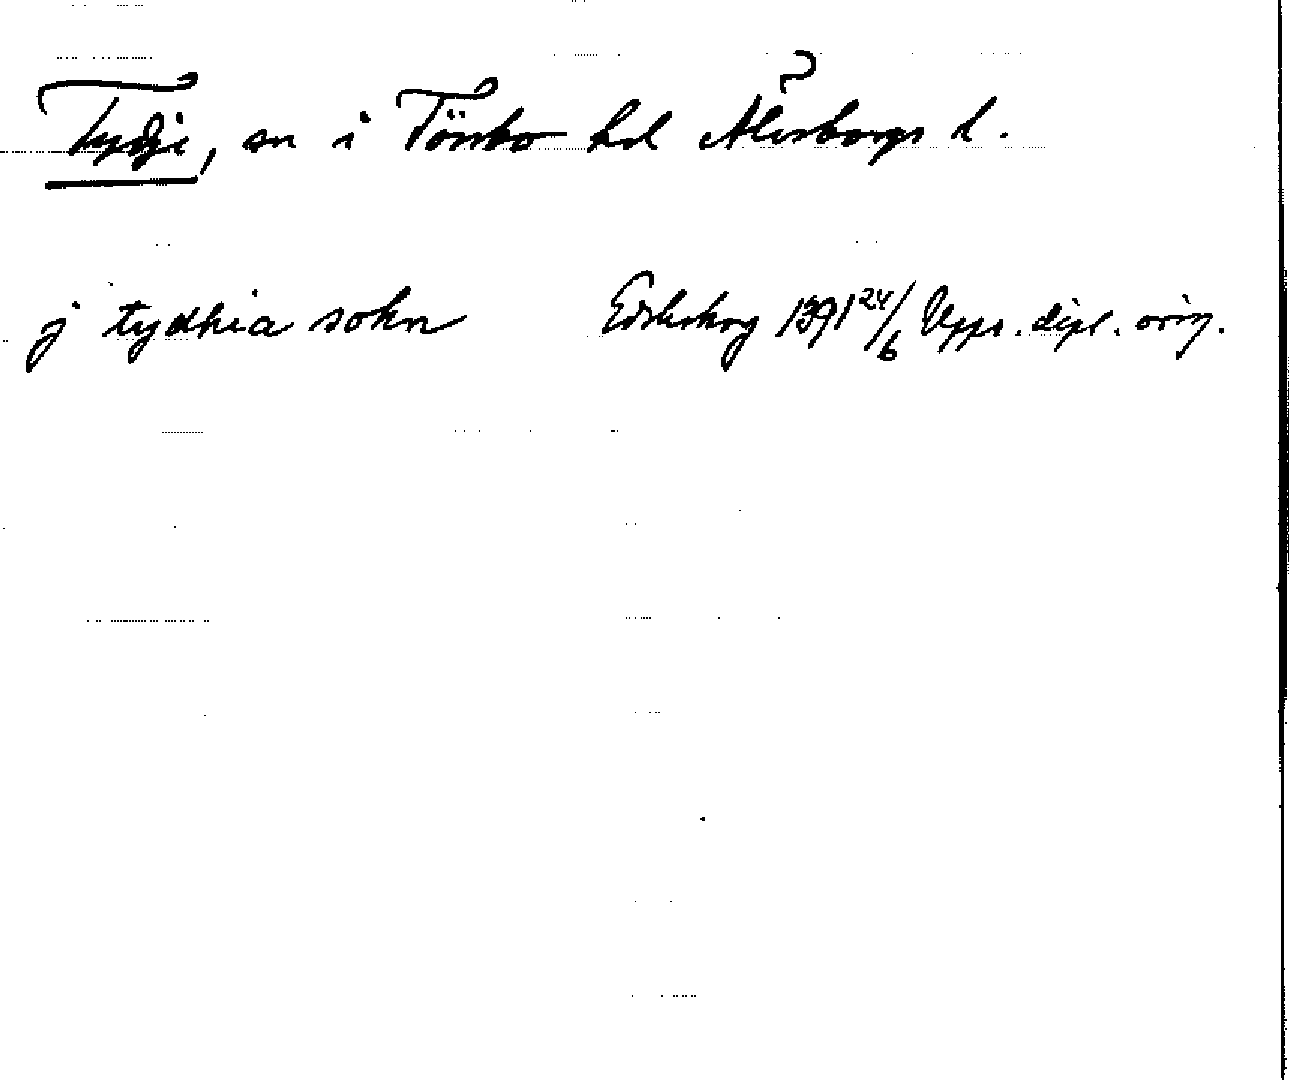 Tydje, sn i Tössbo hd Älvsborgs l.
j tydhia sokn Edsleskog 1391 24/6 Upps. dipl. orig.